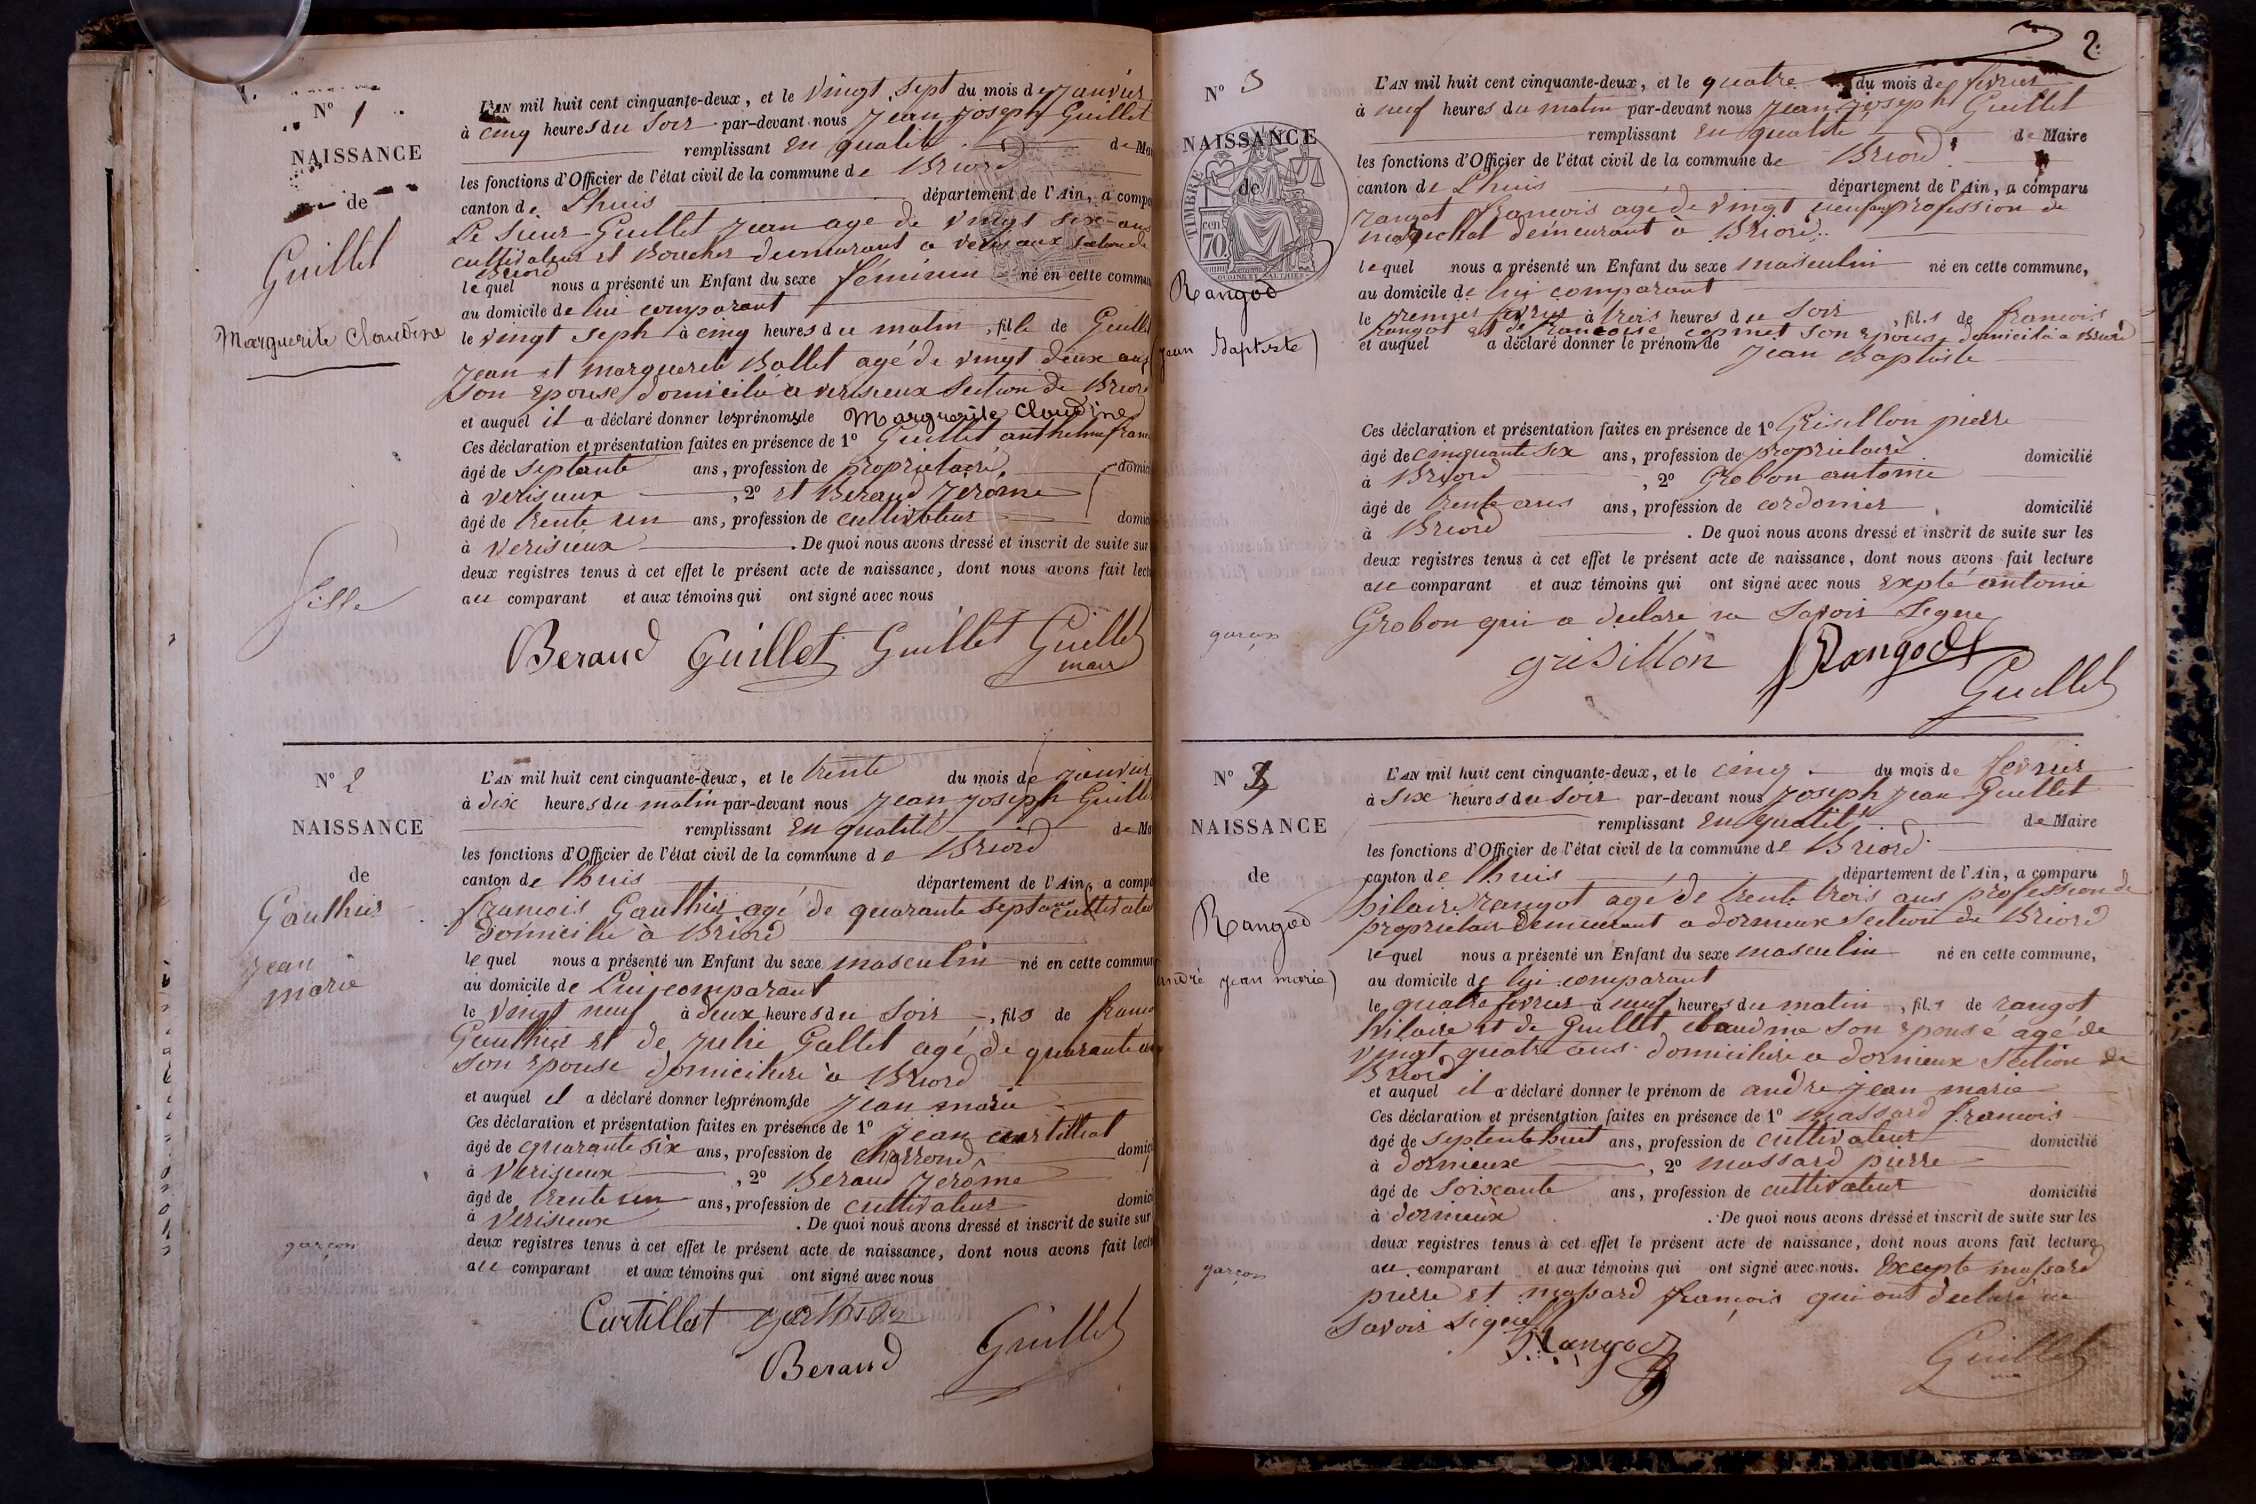 N° 1
NAISSANCE
de
Guillet
Marguerite Claudine
fille
L'AN mil huit cent cinquante-deux, et le vingt sept du mois de janvier
à cinq heures du soir par-devant nous jean joseph Guillet
remplissant en qualité de Ma
les fonctions d'Officier de l'état civil de la commune de Briord
canton de Lhuis département de l'Ain, a compa
Le sieur Guillet jean agé de vingt six ans
cultivateur et Boucher demeurant a verisieux section de
Briord
le quel nous a présenté un Enfant du sexe féminin né en cette commun
au domicile de lui comparant
le vingt seph à cinq heures du matin, fille de Guillet
jean et marguerite Ballet agé de vingt deux ans
son epouse domicilié a verisieux section de Briord
et auquel il a déclaré donner les prénoms de Marguerite Claudine
Ces déclaration et présentation faites en présence de 1° Guillet anthelme franc
âgé de septante ans, profession de proprietaire domici
à verisieux, 2° et Beraud jérôme
âgé de trente un ans, profession de cultivateur domici
à verisieux. De quoi nous avons dressé et inscrit de suite sur
deux registres tenus à cet effet le présent acte de naissance, dont nous avons fait lectu
au comparant et aux témoins qui ont signé avec nous
Beraud Guillet Guillet Guillet
maire
N° 2
NAISSANCE
de
Gauthier
jean
marie
garçon
L'AN mil huit cent cinquante-deux, et le trente du mois de janvier
à dix heures du matin par-devant nous jean joseph Guillet
remplissant en qualité de Ma
les fonctions d'Officier de l'état civil de la commune de Briord
canton de lhuis département de l'Ain, a compa
francois Gauthier agé de quarante sept ans cultivateur
domicilié à Briord
le quel nous a présenté un Enfant du sexe masculin né en cette commun
au domicile de Lui comparant
le vingt neuf à deux heures du soir, fils de franco
Gauthier et de julie Gallet agé de quarante ans
son epouse domiciliere à Briord
et auquel il a déclaré donner les prénoms de jean marie
Ces déclaration et présentation faites en présence de 1° jean curtillat
âgé de quarante six ans, profession de charrond domici
à Verisieux, 2° Beraud Jerome
âgé de trente un ans, profession de cultivateur domici
à Verisieux. De quoi nous avons dressé et inscrit de suite sur
deux registres tenus à cet effet le présent acte de naissance, dont nous avons fait lectu
au comparant et aux témoins qui ont signé avec nous
Curtillat Gauthier
Beraud Guillet
2
N° 3
NAISSANCE
de
TIMBRE
70 cen
Rangod
jean Baptiste
garçon
L'AN mil huit cent cinquante-deux, et le quatre du mois de fevrier
à neuf heures du matin par-devant nous jean joseph Guillet
remplissant en qualité de Maire
les fonctions d'Officier de l'état civil de la commune de Briord
canton de Lhuis département de l'Ain, a comparu
rangot francois agé de vingt neuf ans profession de
marechal demeurant à Briord
le quel nous a présenté un Enfant du sexe masculin né en cette commune,
au domicile de lui comparant
le premier fevrier à trois heures du soir, fils de francois
rangot et de francoise son epouse domicilié a Briord
et auquel a déclaré donner le prénom de jean Baptiste
Ces déclaration et présentation faites en présence de 1° Grisillon pierre
âgé de cinquante six ans, profession de proprietaire domicilié
à Briord, 2° Grobon antoine
âgé de trente ans ans, profession de cordonier domicilié
à Briord. De quoi nous avons dressé et inscrit de suite sur les
deux registres tenus à cet effet le présent acte de naissance, dont nous avons fait lecture
au comparant et aux témoins qui ont signé avec nous expté antoine
Grobon qui a declare ne savoir signe
Grisillon Rangod
Guillet
N° 4
NAISSANCE
de
Rangod
andré jean marie
garçon
L'AN mil huit cent cinquante-deux, et le cinq du mois de fevrier
à six heures du soir par-devant nous joseph jean Guillet
remplissant en qualité de Maire
les fonctions d'Officier de l'état civil de la commune de Briord
canton de lhuis département de l'Ain, a comparu
hilaire rangot agé de trente trois ans profession de
proprietair demeurant a dornieux section de Briord
le quel nous a présenté un Enfant du sexe masculin né en cette commune,
au domicile de lui comparant
le quatre fevrier à neuf heures du matin, fils de rangot
hilaire et de Guillet claudine son epouse agé de
vingt quatre ans domiciliere a dornieux section de
Briord
et auquel il a déclaré donner le prénom de andre jean marie
Ces déclaration et présentation faites en présence de 1° massard francois
âgé de septente huit ans, profession de cultivateur domicilié
à dornieux, 2° massard pierre
âgé de soixante ans, profession de cultivateur domicilié
à dornieux. De quoi nous avons dressé et inscrit de suite sur les
deux registres tenus à cet effet le présent acte de naissance, dont nous avons fait lecture
au comparant et aux témoins qui ont signé avec nous. Excepte massard
pierre et massard françois qui ont declaré ne
savoir signer
Rangod
Guillet